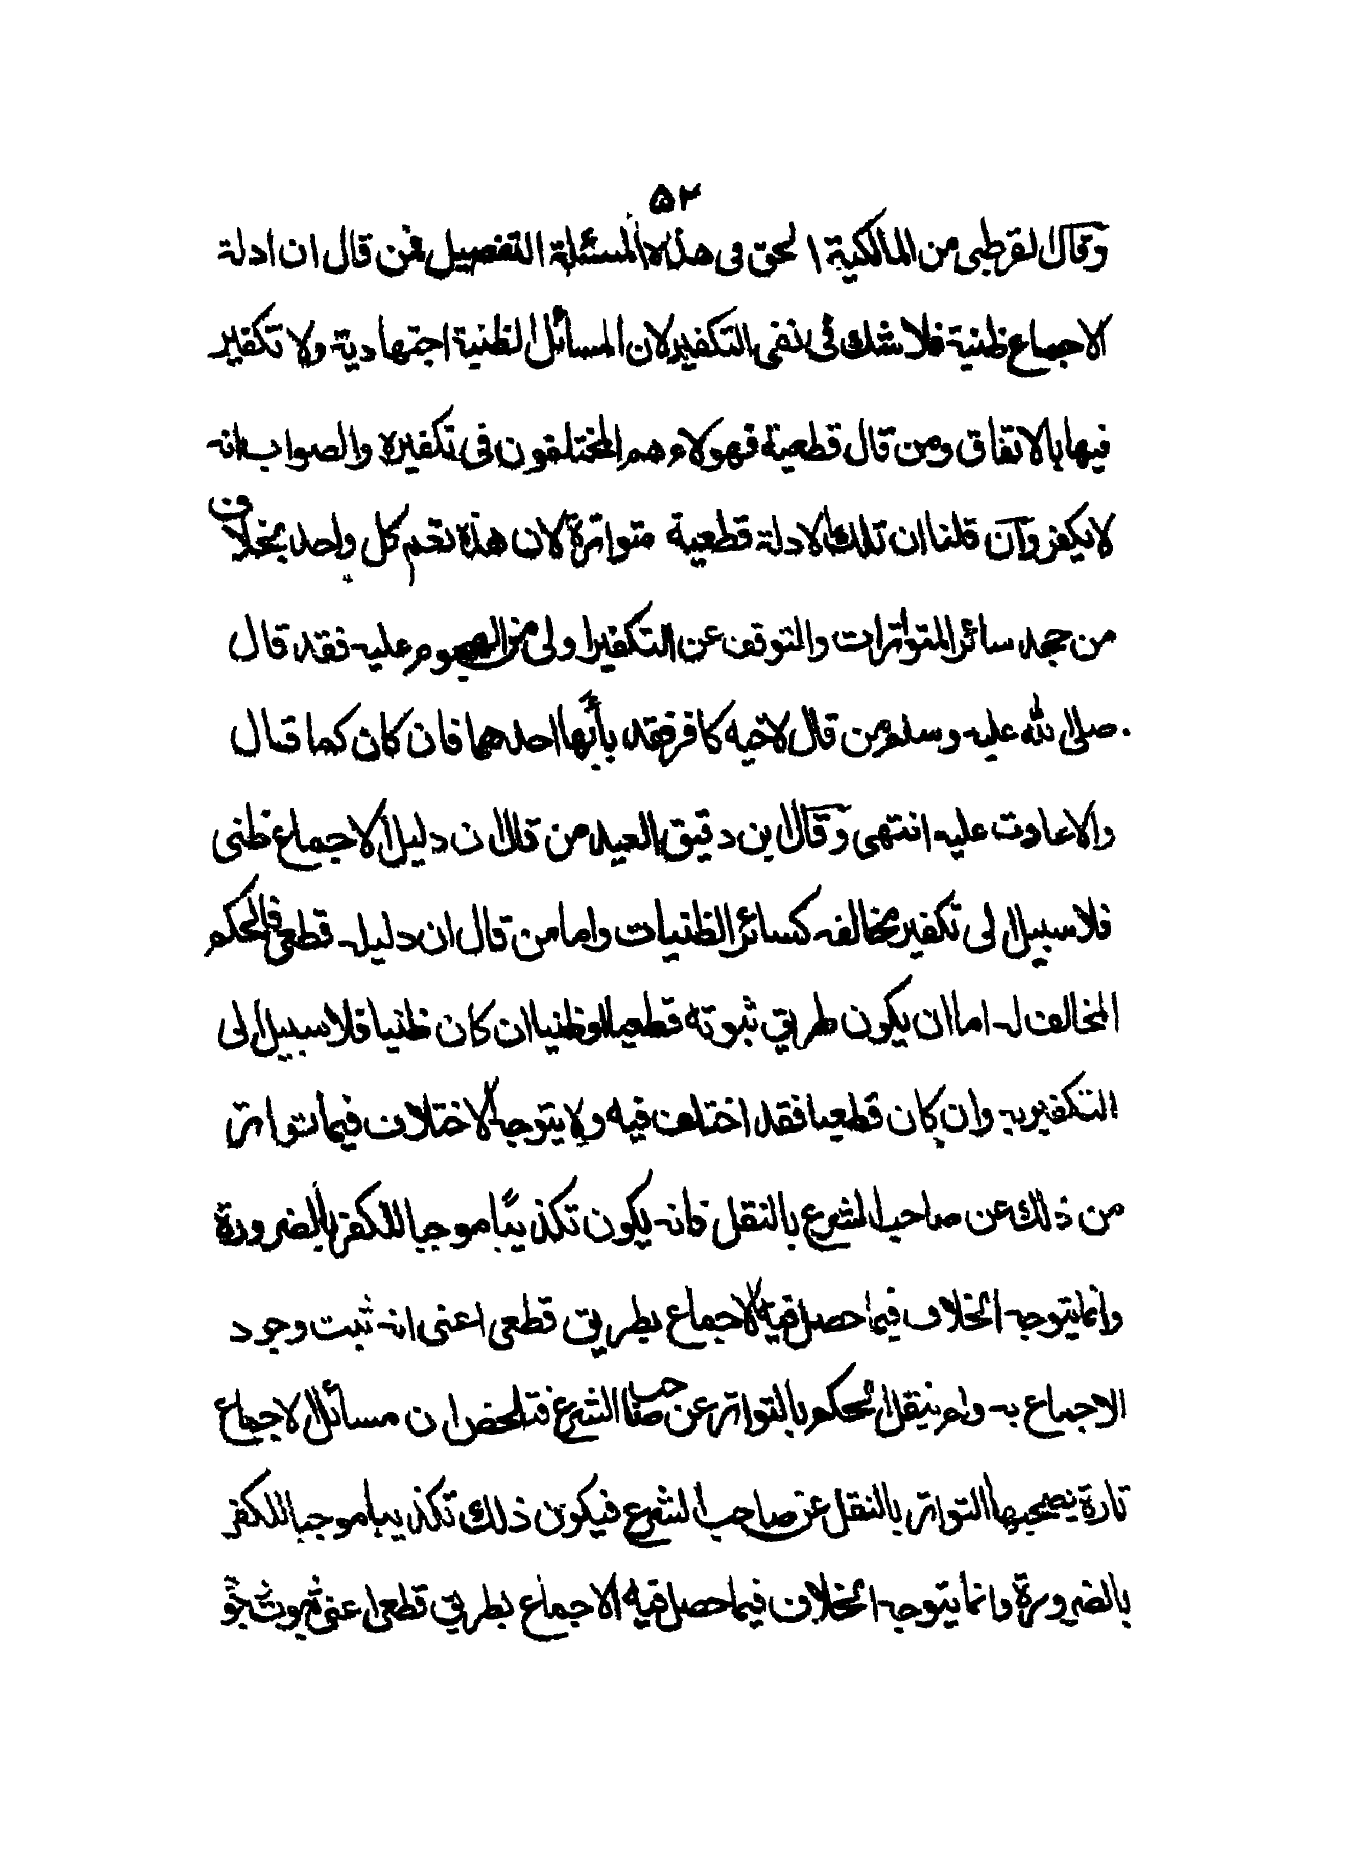 ٥٢
وقال لقرطبي من المالكية ا لحق في هذه المسئلة التفصيل فمن قال ان ادلة
الاجماع ظنية فلا شك في نفي التكفير لان المسائل الظنية اجتهادية ولا تكفير
فيها بالاتفاق ومن قال قطعية فهولاء هم المختلفون في تكفيره والصواب انه
لا يكفر وان قلنا ان تلك الادلة قطعية متواترة لان هذه تعم كل واحد بخلاف
من جحد سائر المتواترات والتوقف عن التكفير اولى من الهجوم عليه فقد قال
صلى الله عليه وسلم من قال لاخيه كافر فقد باء بها احدهما فان كان كما قال
والا عادت عليه انتهى وقال ابن دقيق العيد من قال ان دليل الاجماع ظني
فلا سبيل الى تكفير مخالفه كسائر الظنيات واما من قال ان دليله قطعي فالحكم
المخالف له اما ان يكون طريق ثبوته قطعيا او ظنيا ان كان ظنيا فلا سبيل الى
التكفير به وان كان قطعيا فقد اختلف فيه ولا يتوجه الاختلاف فيما تواتر
من ذلك عن صاحب الشرع بالنقل فانه يكون تكذيبا موجبا للكفر بالضرورة
وانما يتوجه الخلاف فيما حصل فيه الاجماع بطريق قطعي اعني انه ثبت وجود
الاجماع به ولم ينقل الحكم بالتواتر عن صاحب الشرع فتلخص ان مسائل الاجماع
تارة يصحبها التواتر بالنقل عن صاحب الشرع فيكون ذلك تكذيبا موجبا للكفر
بالضرورة وانما يتوجه الخلاف فيما حصل فيه الاجماع بطريق قطعي اعني ثبوت